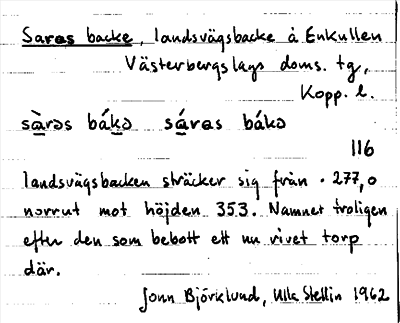 Saras backe, landsvägsbacke å Enkullen
Västerbergslags doms. tg,
Kopp. l.
sàrəs bákə sáras bákə
116
landsvägsbacken sträcker sig från . 277,0
norrut mot höjden 353. Namnet troligen
efter den som bebott ett nu rivet torp
där.
Jonn Björklund, Ulla Stellin 1962